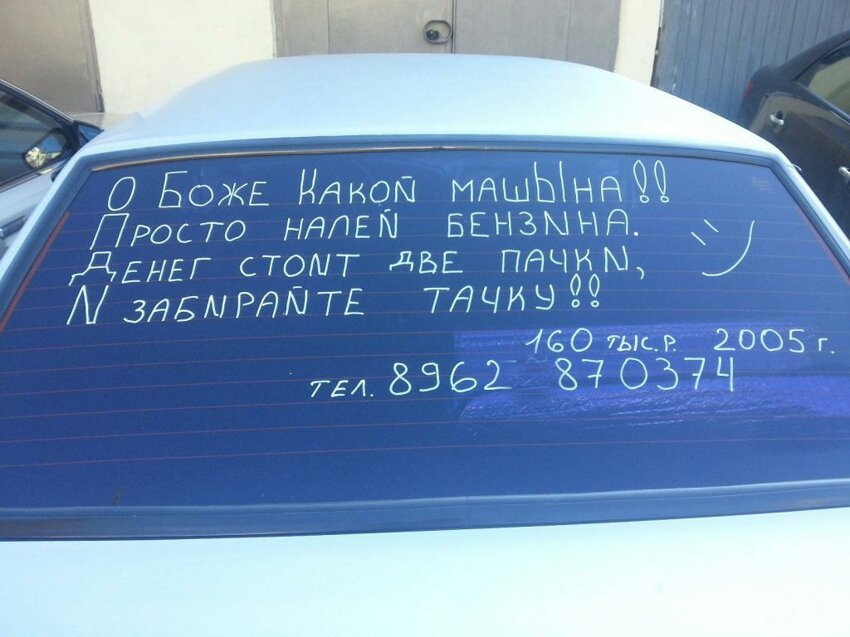 О Боже Какой машЫна!!
Просто налей бензина.
Денег стоит две пачки,
И забирайте тачку!!
160 тыс.р. 2005г.
тел. 8962 870374